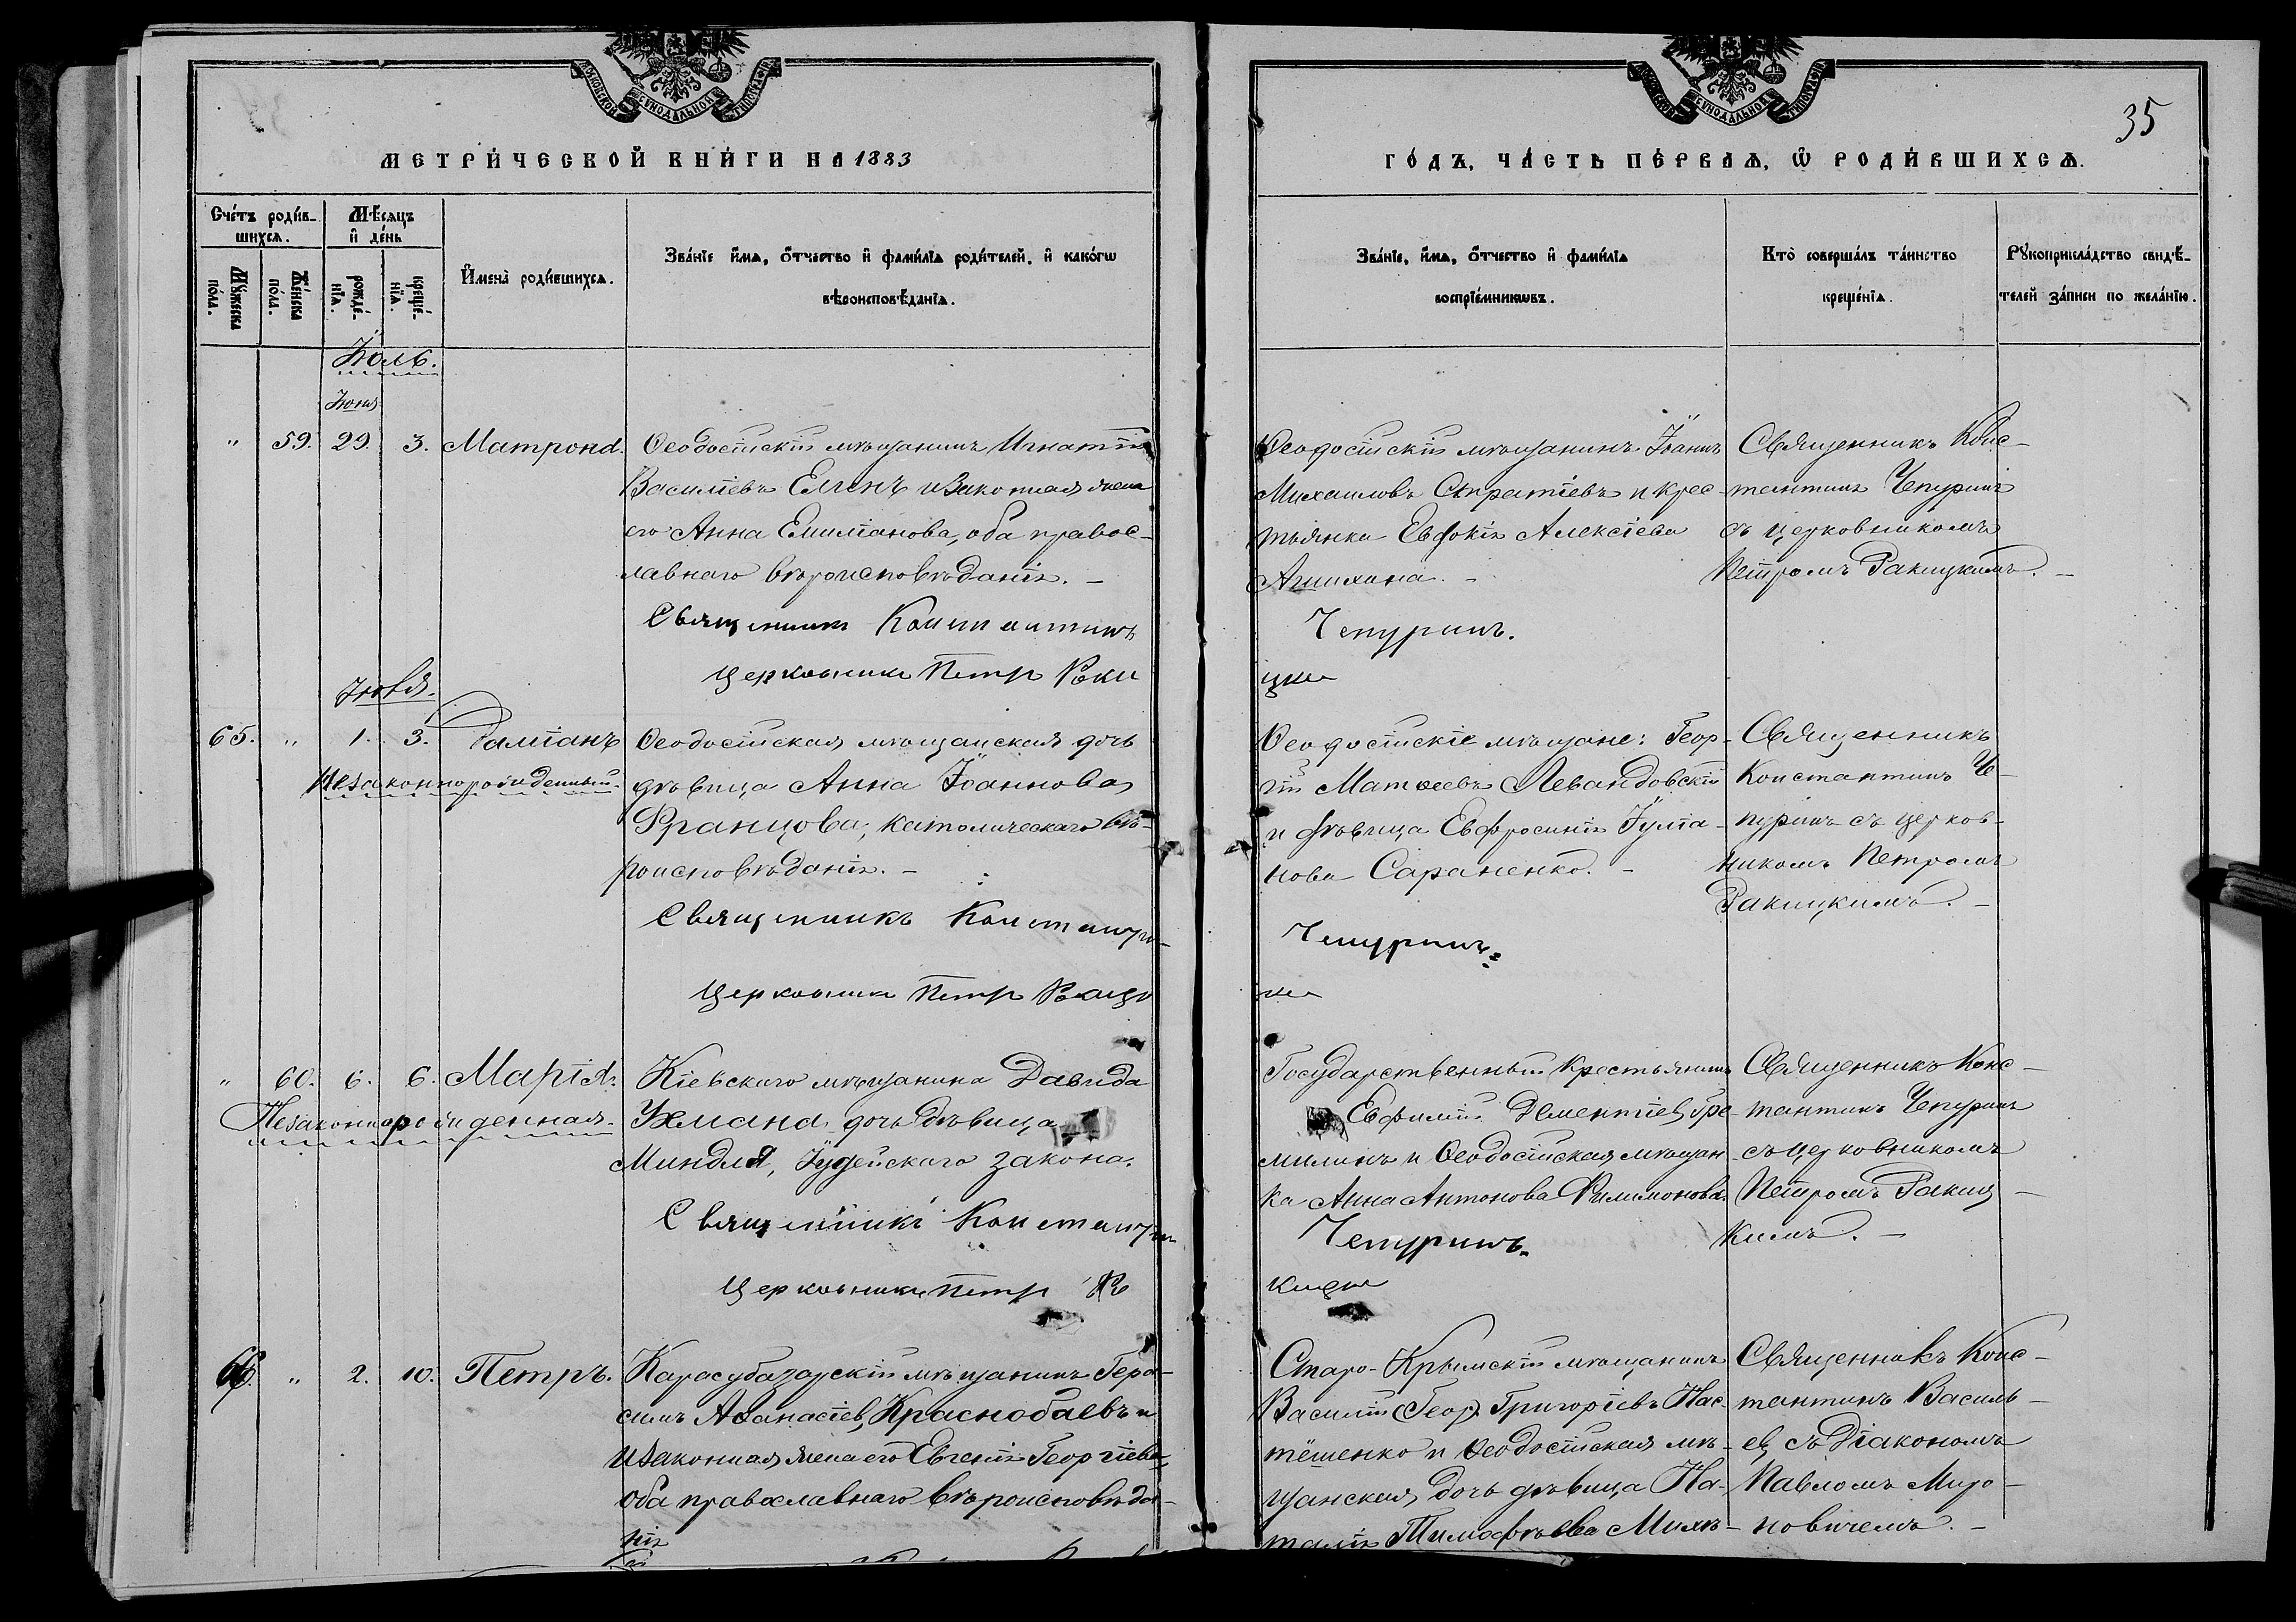 МОСКОВСКОЙ СѴНОДАЛЬНОЙ ТИПОГРАФІИ
МЕТРИ́ЧЕСКОЙ КНИ́ГИ НА 1883
Сче́тъ роди́в-
шихсѧ.
Мѣ́сѧцъ
и҆ де́нь
Мꙋ́жеска
по́ла.
Же́нска
по́ла.
рожде́-
нїѧ.
креще́-
нїѧ.
И҆мена̀ роди́вшихсѧ.
Зва́нїе и҆́мѧ, ѻ҆́тчество и҆ фами́лїѧ роди́телей, и҆ како́гѡ
вѣроисповѣ́данїѧ.
Іюль.
Іюня
" 59. 29. 3. Матрона.
Ѳеодосійскій мѣщанинъ Игнатій
Василіевъ Еленъ и законная жена
его Анна Емиліанова, оба правос-
лавнаго вѣроисповѣданія. –
Священникъ Константинъ
Церковникъ Петръ Раки
Іюля.
65. " 1. 3. Даміанъ
Незаконнорожденный.
Ѳеодосійская мѣщанская дочь
дѣвица Анна Іоаннова
Францова, католическаго вѣ-
роисповѣданія. –
Священникъ Константин
Церковникъ Петръ Ракиц
" 60. 6. 6. Марія.
Незаконнорожденная.
Кіевскаго мѣщанина Давида
Ухмана дочь дѣвица
Миндля, Іудейскаго закона.
Священникъ Константин
Церковникъ Петръ Ра
66. " 2. 10. Петръ.
Карасубазарскій мѣщанинъ Гера-
симъ Аѳанасіевъ Краснобаевъ и
и законная жена его Евгенія Георгіева,
оба православнаго вѣроисповѣда-
нія
35
МОСКОВСКОЙ СѴНОДАЛЬНОЙ ТИПОГРАФІИ
ГО́ДЪ, ЧА́СТЬ ПЕ́РВАѦ, Ѽ РОДИ́ВШИХСѦ.
Зва́нїе, и҆́мѧ, ѻ҆́тчество и҆ фами́лїѧ
воспрїе́мникѡвъ.
Кто̀ соверша́лъ та́инство
креще́нїѧ.
Рꙋкоприкла́дство свидѣ́-
телей за́писи по жела́нїю.
Ѳеодосійскій мѣщанинъ Іоаннъ
Михаиловъ Стратіевъ и крес-
тьянка Евдокія Алексіева
Священникъ Конс-
тантинъ Чепуринъ
съ церковникомъ
Петромъ Ракицкимъ. –
Чепуринъ.
цкій
Ѳеодосійскіе мѣщане: Геор-
гій Матѳеевъ Левандовскій
и дѣвица Евфросинія Іулiа-
нова Сараненко. –
Священникъ
Константинъ Че-
пуринъ съ церков-
никомъ Петромъ
Ракицкимъ. –
Чепуринъ
кій
Государственный крестьянинъ
Евфимій Дементіевъ Гре-
милинъ и Ѳеодосійская мѣщан-
ка Анна Антонова Филимонова.
Священникъ Конс-
тантинъ Чепуринъ
съ церковникомъ
Петромъ Ракиц-
кимъ. –
Чепуринъ.
кицкій
Старо-Крымскій мѣщанинъ
Василій (Геор) Григоріевъ Нас-
тёшенко и Ѳеодосійская мѣ-
щанская дочь дѣвица На-
талія Тимофѣева Михѣ-
Священникъ Конс-
тантинъ Василь-
евъ съ Діакономъ
Павломъ Миро-
новичемъ. –